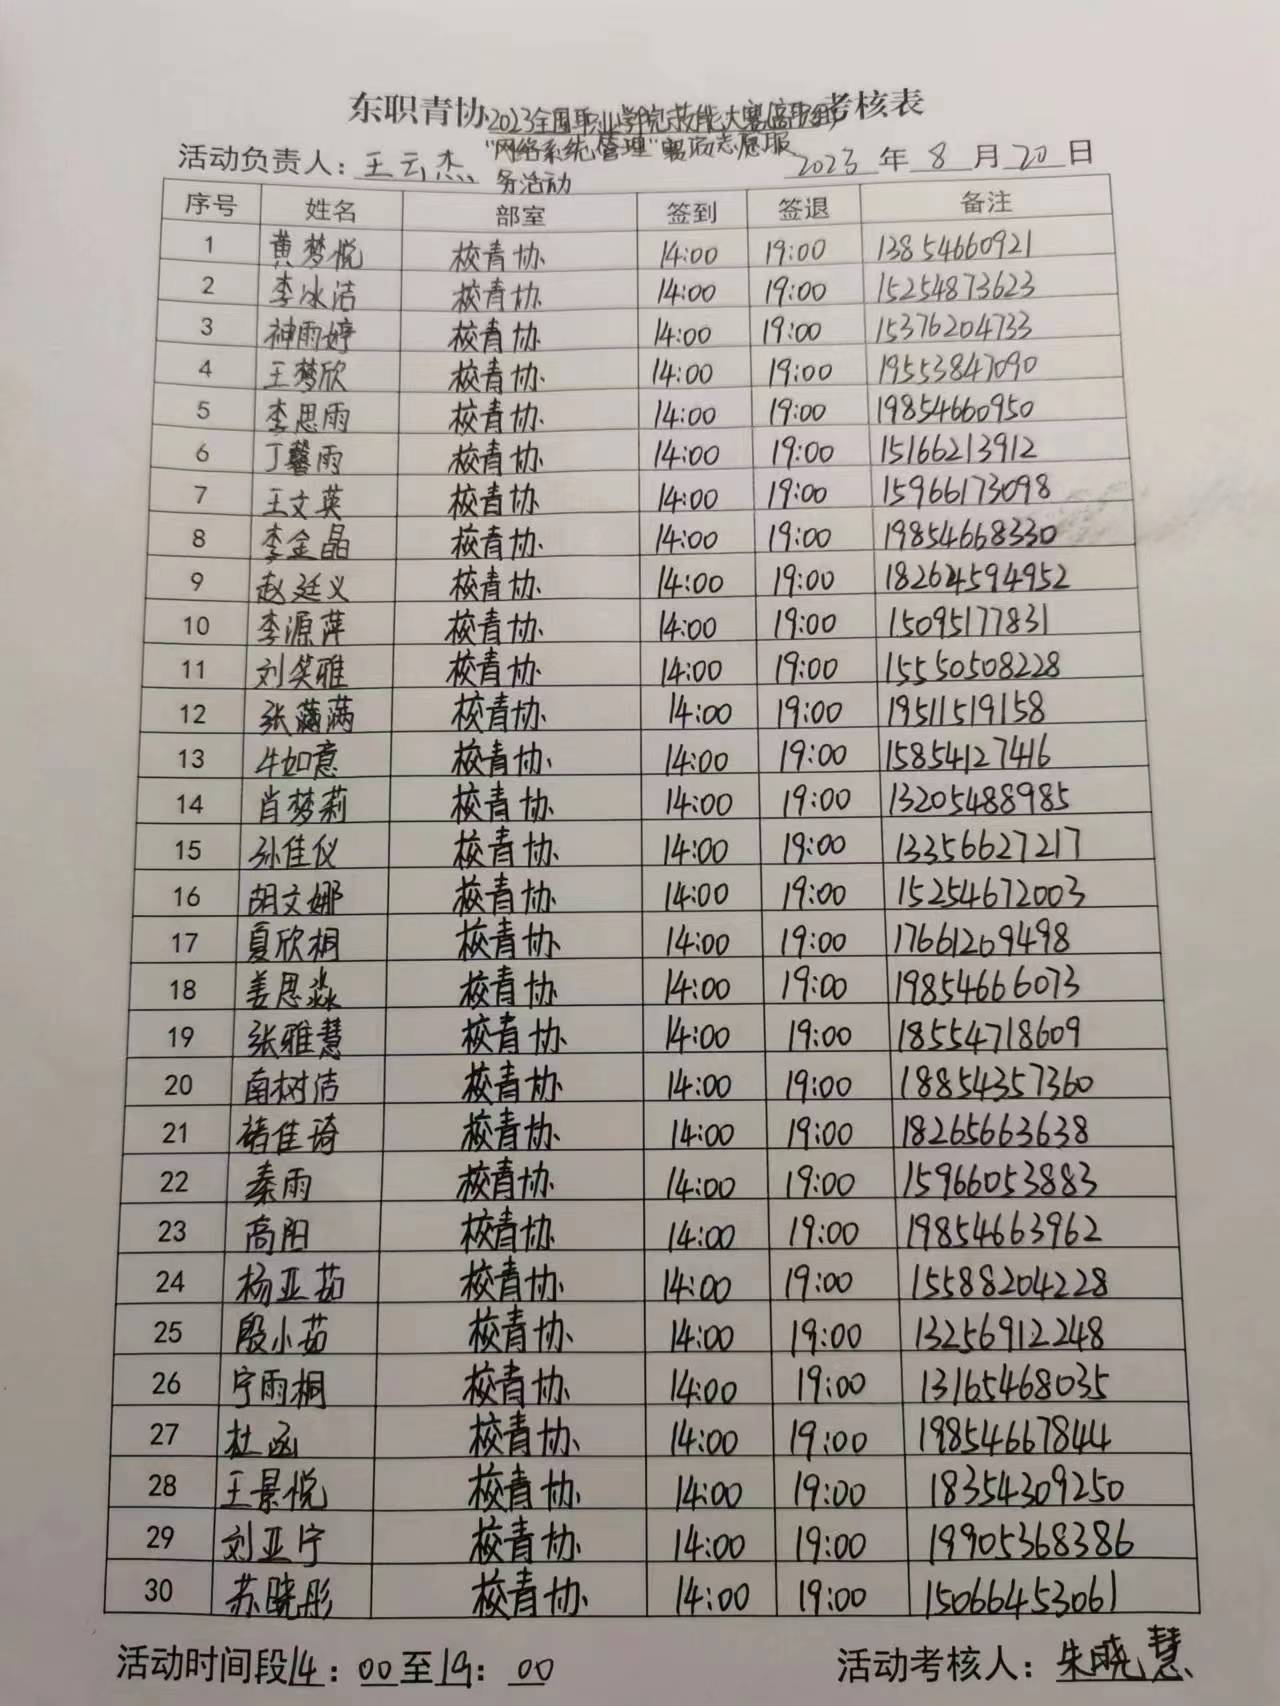 东职青协2023全国职业学院技能大赛(高职组)考核表
"网络系统管理"赛项志愿服
务活动
活动负责人：王云杰 2023 年 8 月 20 日
序号 姓名 部室 签到 签退 备注
1 黄梦悦 校青协 14:00 19:00 13854660921
2 李冰洁 校青协 14:00 19:00 15254873623
3 神雨婷 校青协 14:00 19:00 15376204733
4 王梦欣 校青协 14:00 19:00 19553847090
5 李思雨 校青协 14:00 19:00 19854660950
6 丁馨雨 校青协 14:00 19:00 15166213912
7 王文英 校青协 14:00 19:00 15966173098
8 李金晶 校青协 14:00 19:00 19854668330
9 赵廷义 校青协 14:00 19:00 18264594952
10 李源萍 校青协 14:00 19:00 15095177831
11 刘笑雅 校青协 14:00 19:00 15550508228
12 张满满 校青协 14:00 19:00 19511519158
13 牛如意 校青协 14:00 19:00 15854127416
14 肖梦莉 校青协 14:00 19:00 13205488985
15 孙佳仪 校青协 14:00 19:00 13356627217
16 胡文娜 校青协 14:00 19:00 15254672003
17 夏欣桐 校青协 14:00 19:00 17661209498
18 姜思淼 校青协 14:00 19:00 19854666073
19 张雅慧 校青协 14:00 19:00 18554718609
20 南树洁 校青协 14:00 19:00 18854357360
21 褚佳琦 校青协 14:00 19:00 18265663638
22 秦雨 校青协 14:00 19:00 15966053883
23 高阳 校青协 14:00 19:00 19854663962
24 杨亚茹 校青协 14:00 19:00 15588204228
25 殷小茹 校青协 14:00 19:00 13256912248
26 宁雨桐 校青协 14:00 19:00 13165468035
27 杜函 校青协 14:00 19:00 19854667844
28 王景悦 校青协 14:00 19:00 18354309250
29 刘亚宁 校青协 14:00 19:00 19905368386
30 苏晓彤 校青协 14:00 19:00 15066453061
活动时间段14：00至19：00 活动考核人：朱晓慧